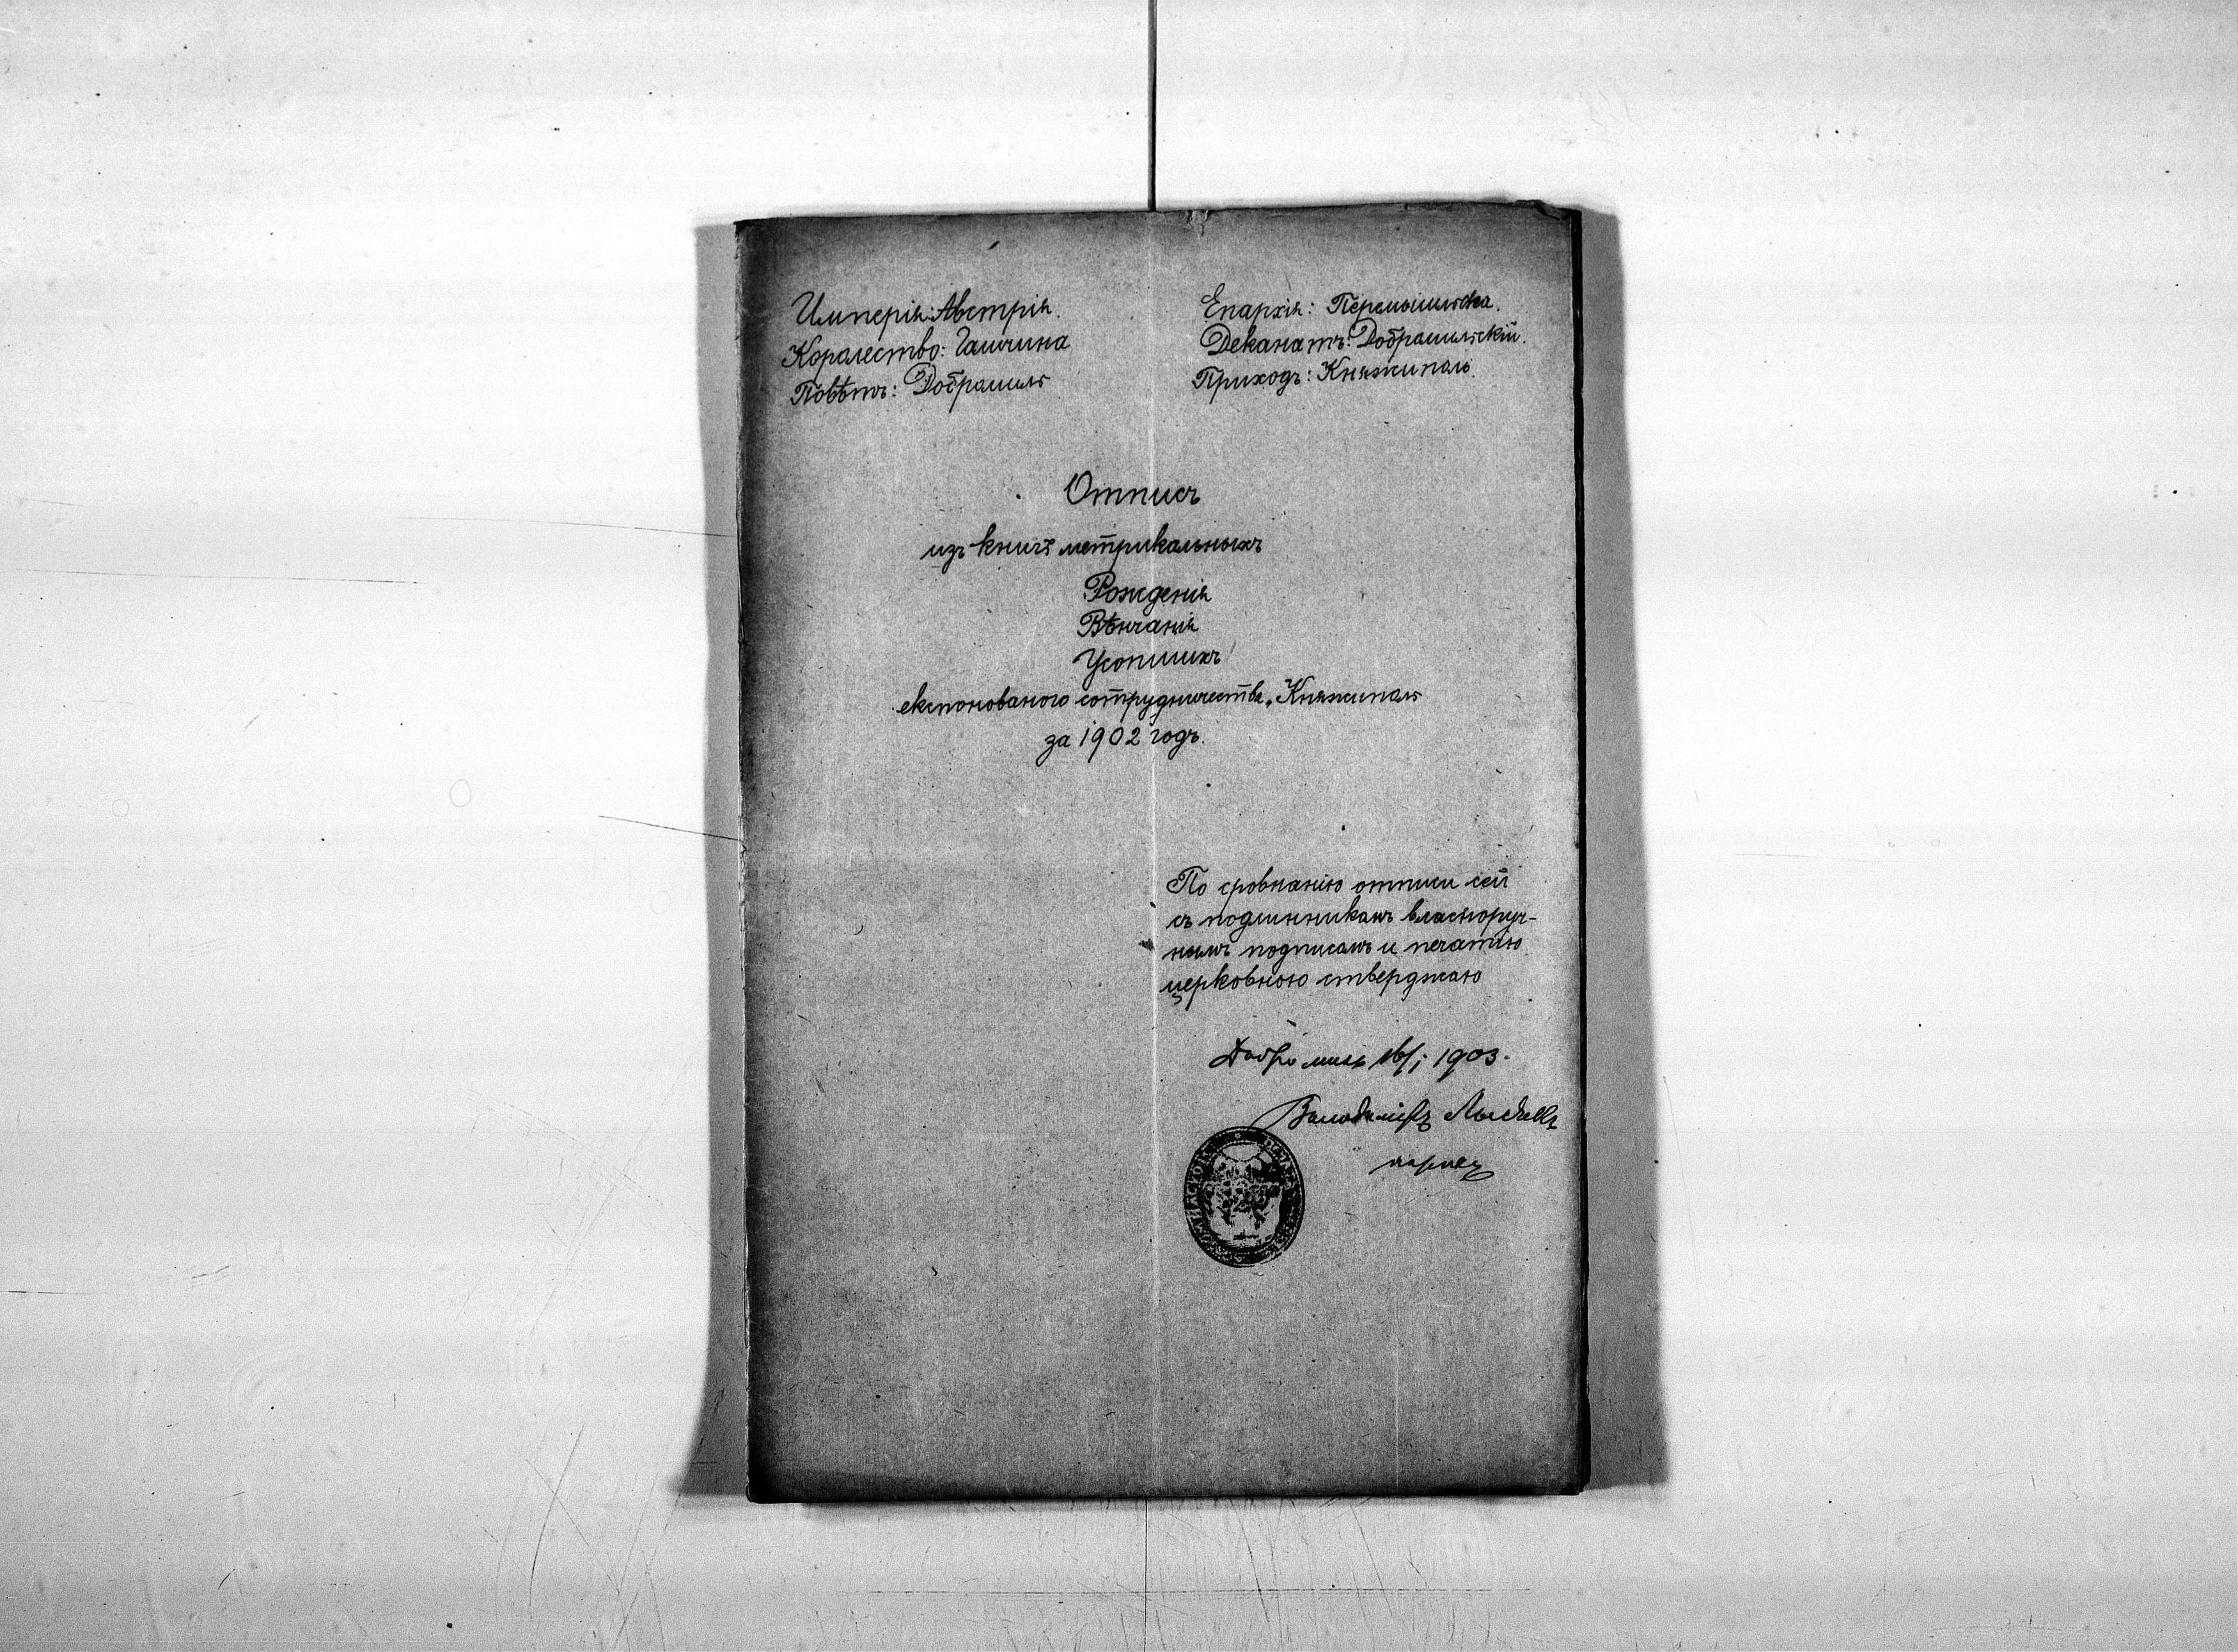 Имперія: Австрія.
Королество: Галичина
Повѣтъ: Добромиль
Епархія: Перемышльска.
Деканатъ: Добромильскій.
Приходъ: Княжиполь.
Отписъ
изъ книгъ метрикальныхъ
Рожденія
Вѣнчанія
Усопшихъ
експонованого сотрудничества „Княжиполь
за 1902 годъ.
По сровнанію отписи сей
съ подлинникомъ власноруч-
нымъ подписомъ и печатію
церковною стверджаю
Добромиль 16/1 1903.
Володимiръ
парохъ